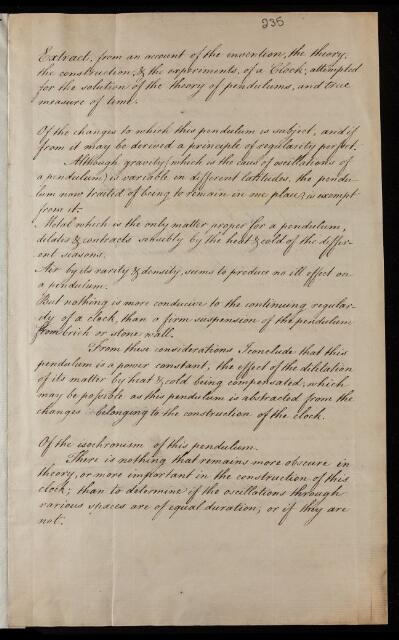 235
Extract, from an account of the invention, the theory,
the construction, & the experiments, of a Clock; attempted
for the solution of the theory of pendulums, and true
measure of time.
Of the changes to which this pendulum is subject, and if
from it may be derived a principle of regularity perfect.
Although gravity (which is the caus of oscillations of
a pendulum) is variable in different latitudes, the pendu-
lum now traited of being to remain in one place, is exempt
from it.
Metal which is the only matter proper for a pendulum,
dilates & contracts sensibly by the heat & cold of the differ-
ent seasons.
Air by its rarity & density, seems to produce no ill effect on
a pendulum.
But nothing is more conducive to the continuing regular-
ity of a clock, than a firm suspension of the pendulum
from brick or stone wall.
From these considerations I conclude that this
pendulum is a power constant, the effect of the dilitation
of its matter by heat & cold being compensated; which
may be possible as this pendulum is abstracted from the
changes belonging to the construction of the clock.
Of the isochronism of this pendulum.
There is nothing that remains more obscure in
theory, or more important in the construction of this
clock; than to determine if the oscillations through
various spaces are of equal duration; or if they are
not.